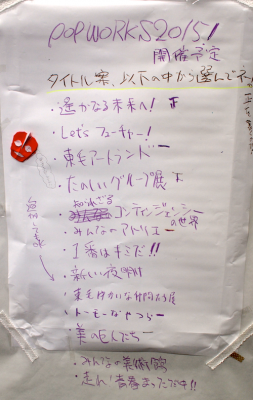 POPWORKS2015!
開催予定
タイトル案、以下の中から選んでネ!
・遥かなる未来へ! 正
・Let's フューチャー!
・東毛アートランド 一
・たのしいグループ展 下
知られざる
・コンティンジェンシーの世界
・みんなのアトリエ 一
・1番はキミだ!!
・新しい夜明け
・東毛ゆかいな仲間たち展
・とーもーなやつら 一
・美の巨人たち 一
・みんなの美術館
・走れ!青春まっただ中!!